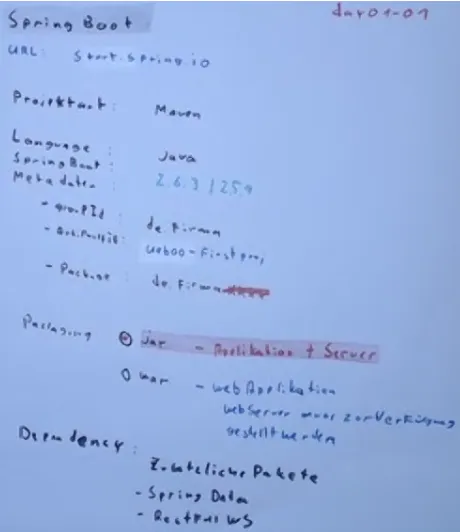 Spring Boot
day01-01
URL: start.spring.io
Projektart: Maven
Language: Java
Spring Boot: 2.6.3 / 2.5.9
Metadaten
- groupId: de.firma
- ArtifactId: web00-firstproj
- Package: de.firma
Packaging jar - Applikation + Server
war - webApplikation
webServer muss zur Verfügung
gestellt werden
Dependency:
Zusätzliche Pakete
- Spring Data
- Restful WS